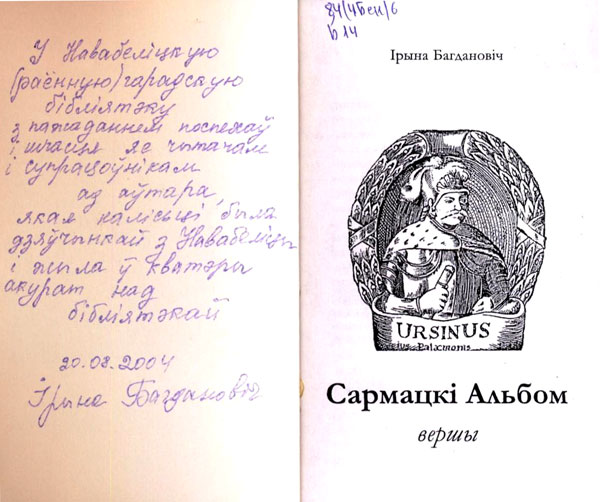 У Навабеліцкую
(раённую) гарадскую
бібліятэку
з пажаданнем поспехаў
і шчасця яе чытачам
і супрацоўнікам
ад аўтара,
якая калісьці была
дзяўчынкай з Навабеліцы
і жыла ў кватэры
акурат над
бібліятэкай
20.08.2004
Ірына Багдановіч
84(4Беи)6
Б14
Ірына Багдановіч
URSINUS
Palæmonis
Сармацкі Альбом
вершы